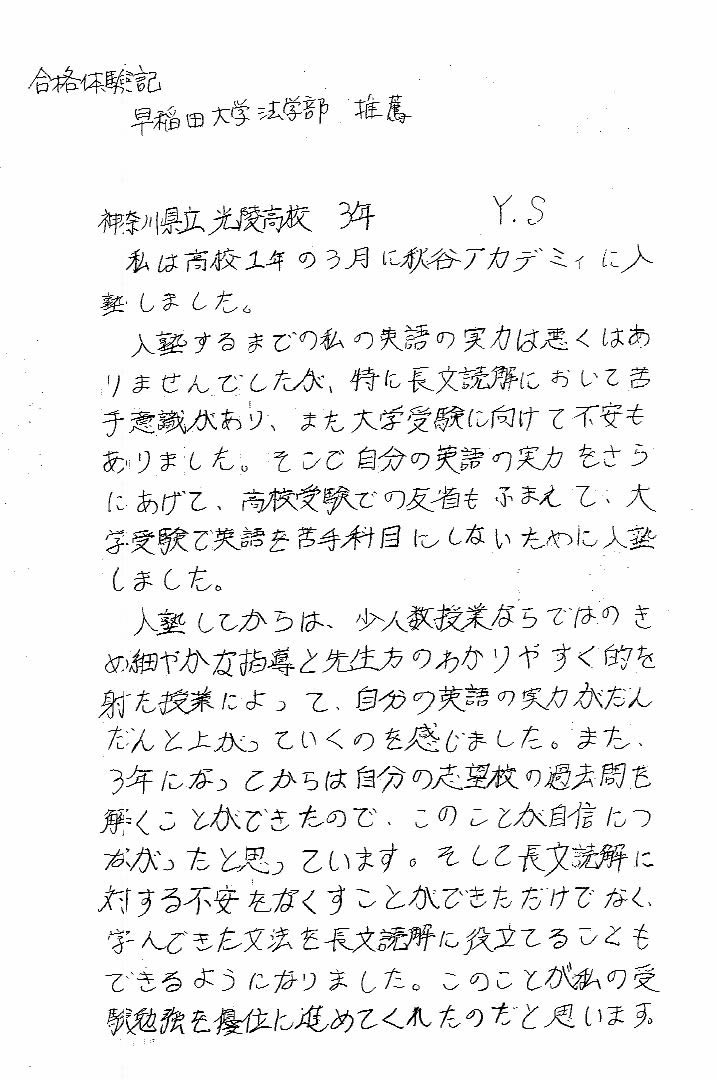 合格体験記
早稲田大学法学部 推薦
神奈川県立光陵高校 3年 Y.S
私は高校1年の3月に秋谷アカデミィに入
塾しました。
入塾するまでの私の英語の実力は悪くはあ
りませんでしたが、特に長文読解において苦
手意識があり、また大学受験に向けて不安も
ありました。そこで自分の英語の実力をさら
にあげて、高校受験での反省もふまえて、大
学受験で英語を苦手科目にしないために入塾
しました。
入塾してからは、少人数授業ならではのき
め細やかな指導と先生方のわかりやすく的を
射た授業によって、自分の英語の実力がだん
だんと上がっていくのを感じました。また、
3年になってからは自分の志望校の過去問を
解くことができたので、このことが自信につ
ながったと思っています。そして長文読解に
対する不安をなくすことができただけでなく、
学んできた文法を長文読解に役立てることも
できるようになりました。このことが私の受
験勉強を優位に進めてくれたのだと思います。